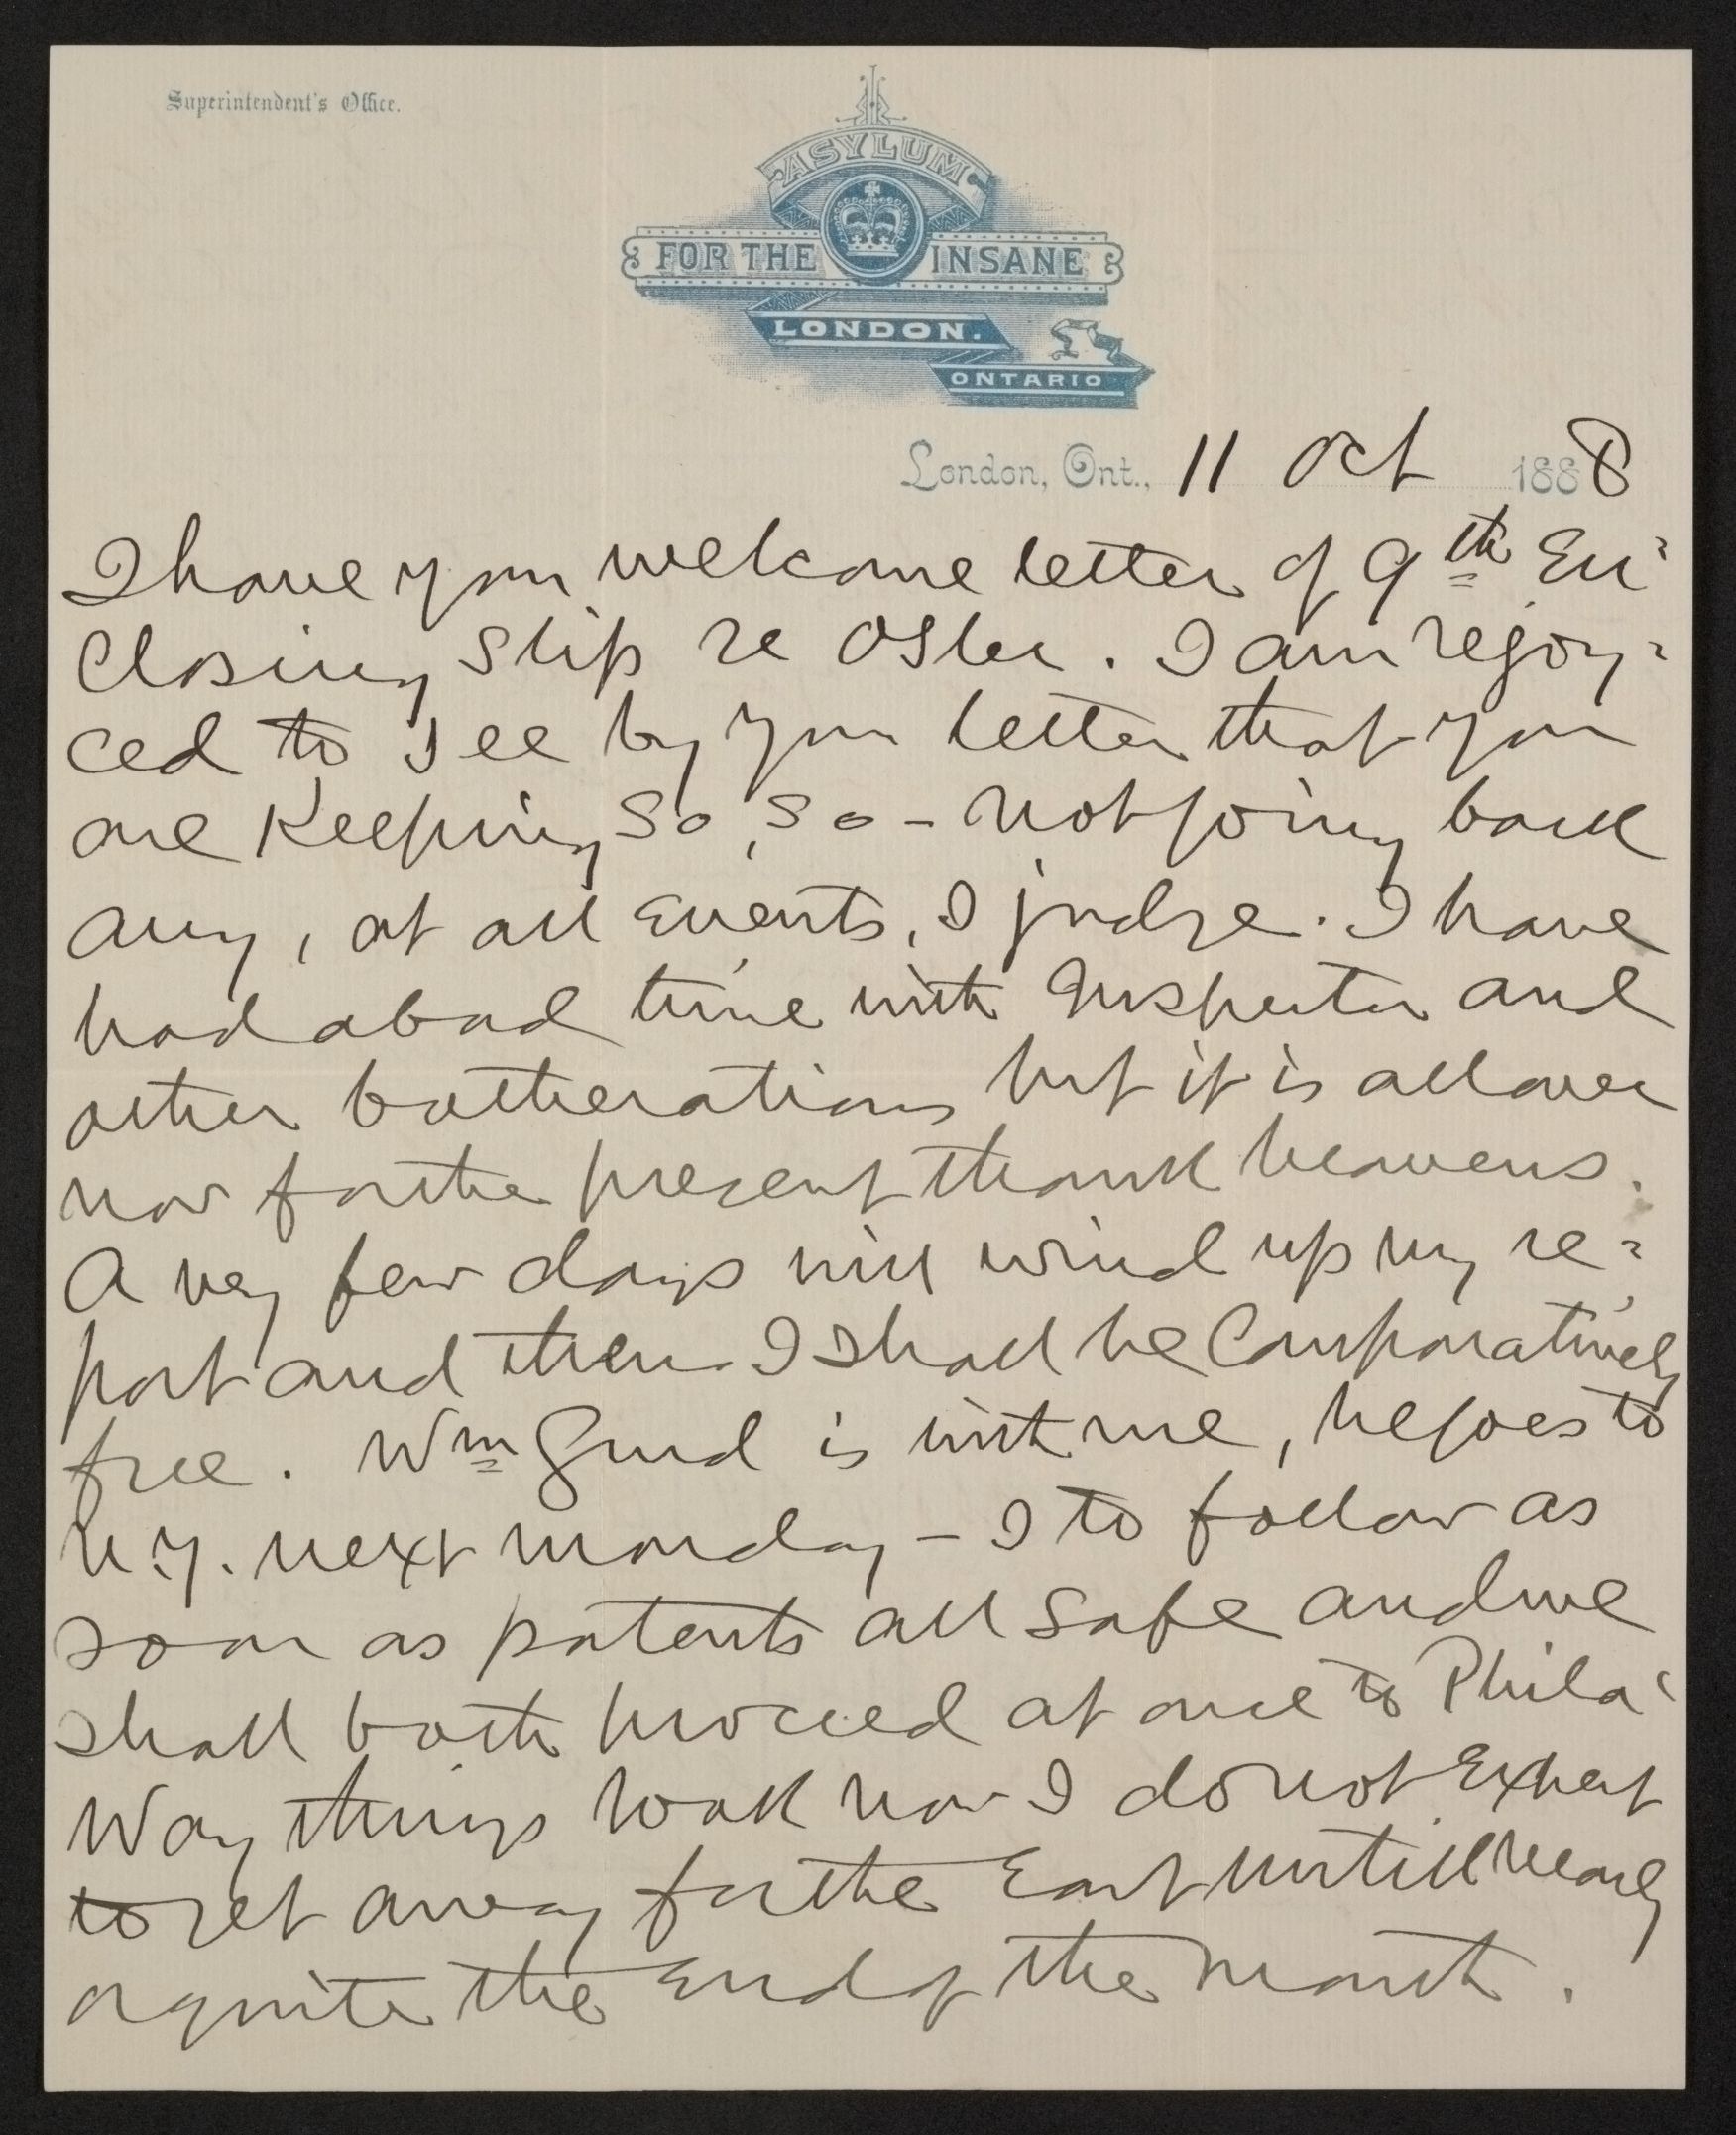 Superintendent's Office.
ASYLUM
FOR THE INSANE
LONDON.
ONTARIO
London, Ont., 11 Oct 1888
I have your welcome letter of 9th En-
closing slip re Osler. I am rejoy-
ced to see by your letter that you
are keeping so, so - not going back
any, at all events, I judge. I have
had a bad time with Inspector and
other botherations but it is all over
now for the present thank heavens.
A very few days will wind up my re-
port and then I shall be Comparatively
free. Wm Gurd is with me, he goes to
N.Y. next monday - I to follow as
soon as patents all safe and we
shall both proceed at once to Phila-
Way things look now I do not Expect
to get away for the East untill nearly
or quite the End of the month.